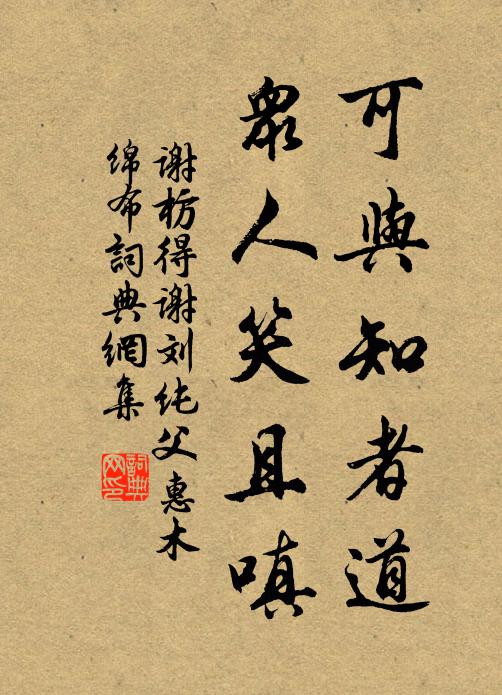 可與知者道
眾人笑且嗔
谢枋得谢刘纯父惠木
绵布詞典網集
詞典
网印